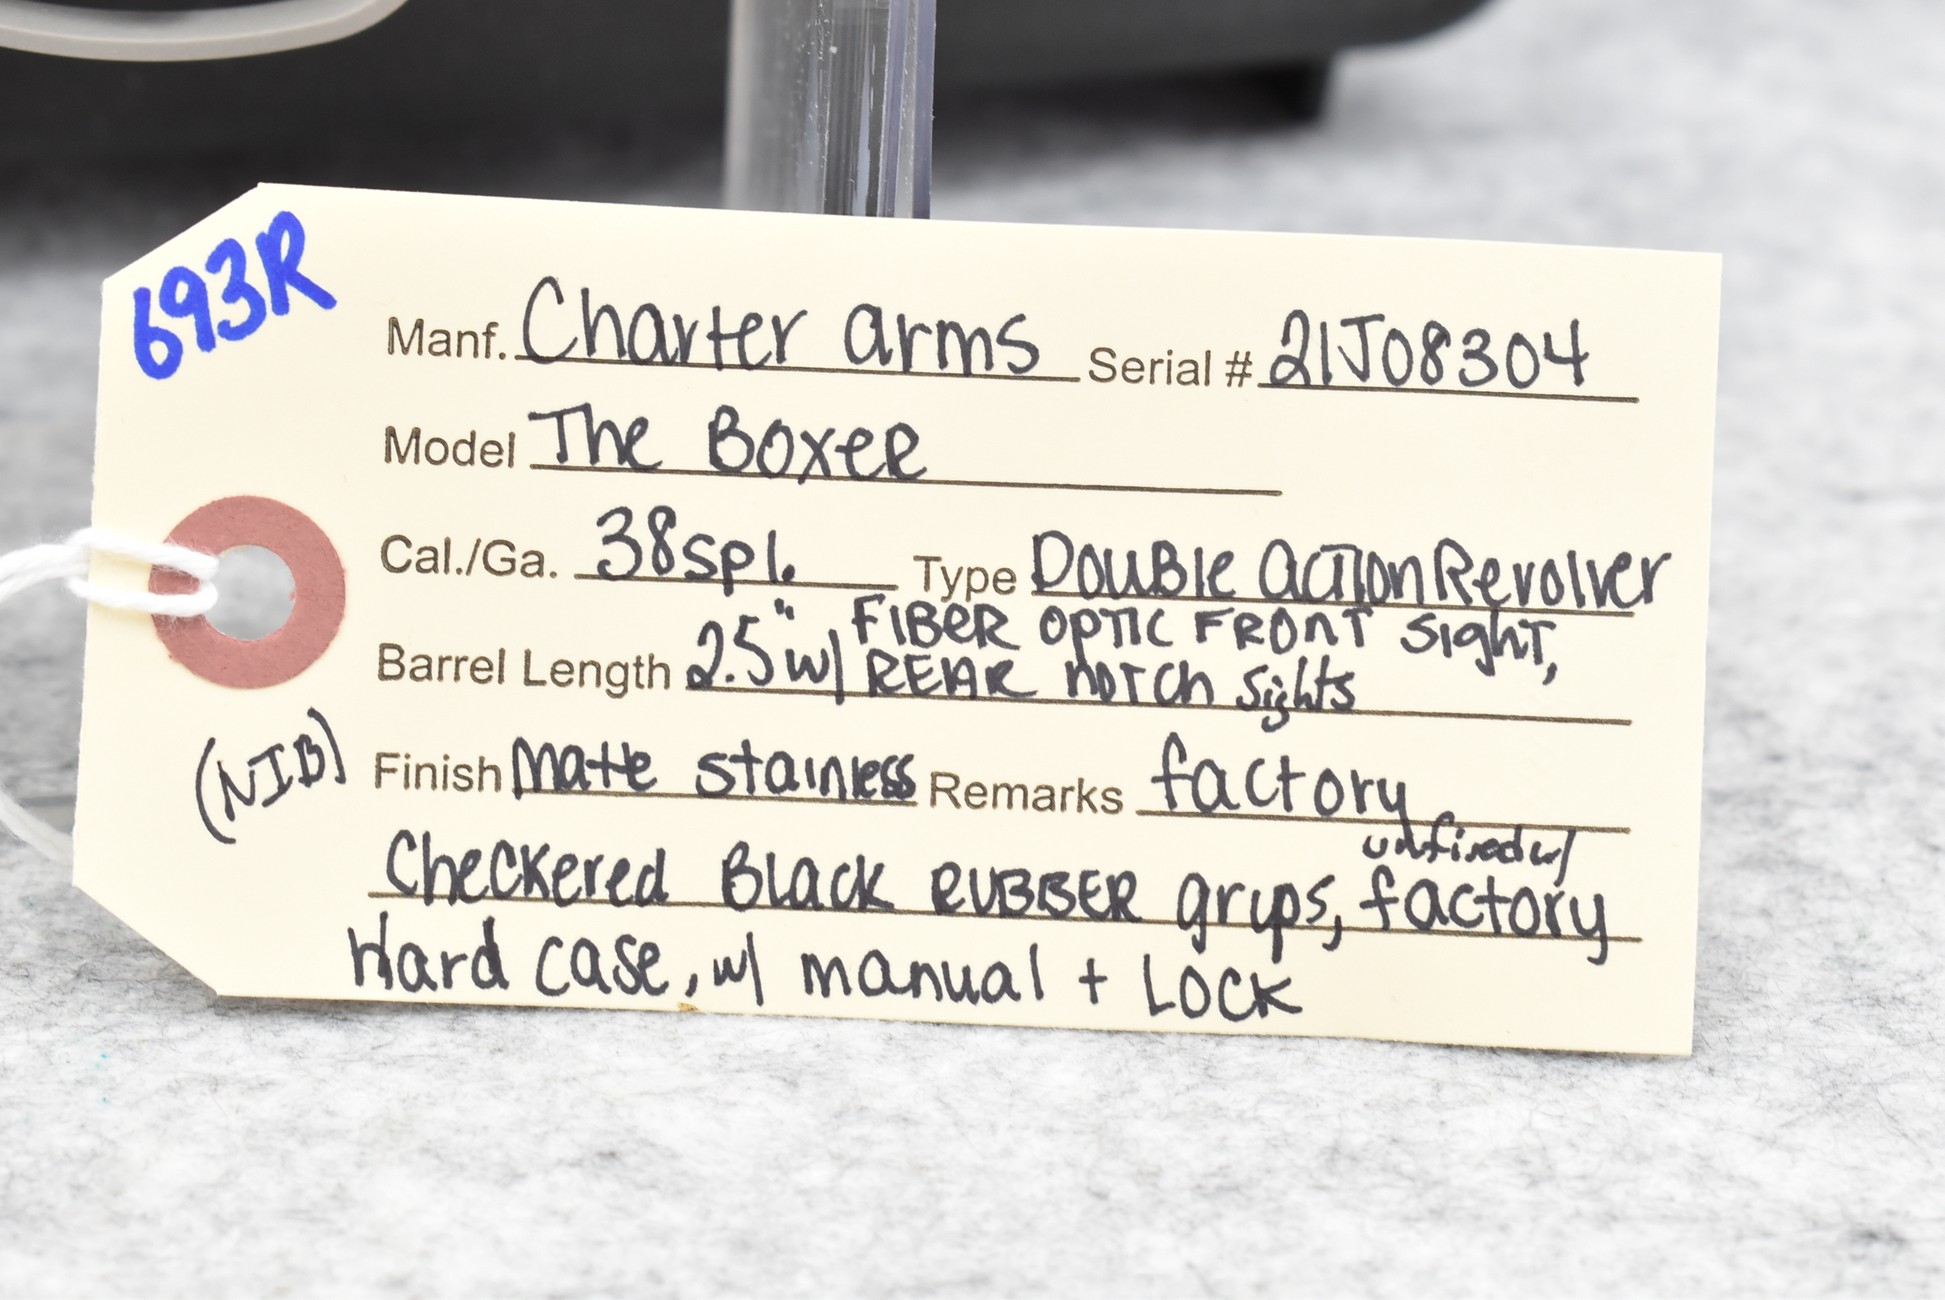 693R
Manf. Charter arms Serial # 21J08304
Model The Boxer
Cal./Ga. 38 spl. Type Double action Revolver
Barrel Length 2.5" w/ FIBER OPTIC FRONT sight,
REAR notch sights
(NIB) Finish Matte stainless Remarks factory
unfired w/
Checkered Black RUBBER grips, factory
Hard case, w/ manual + Lock